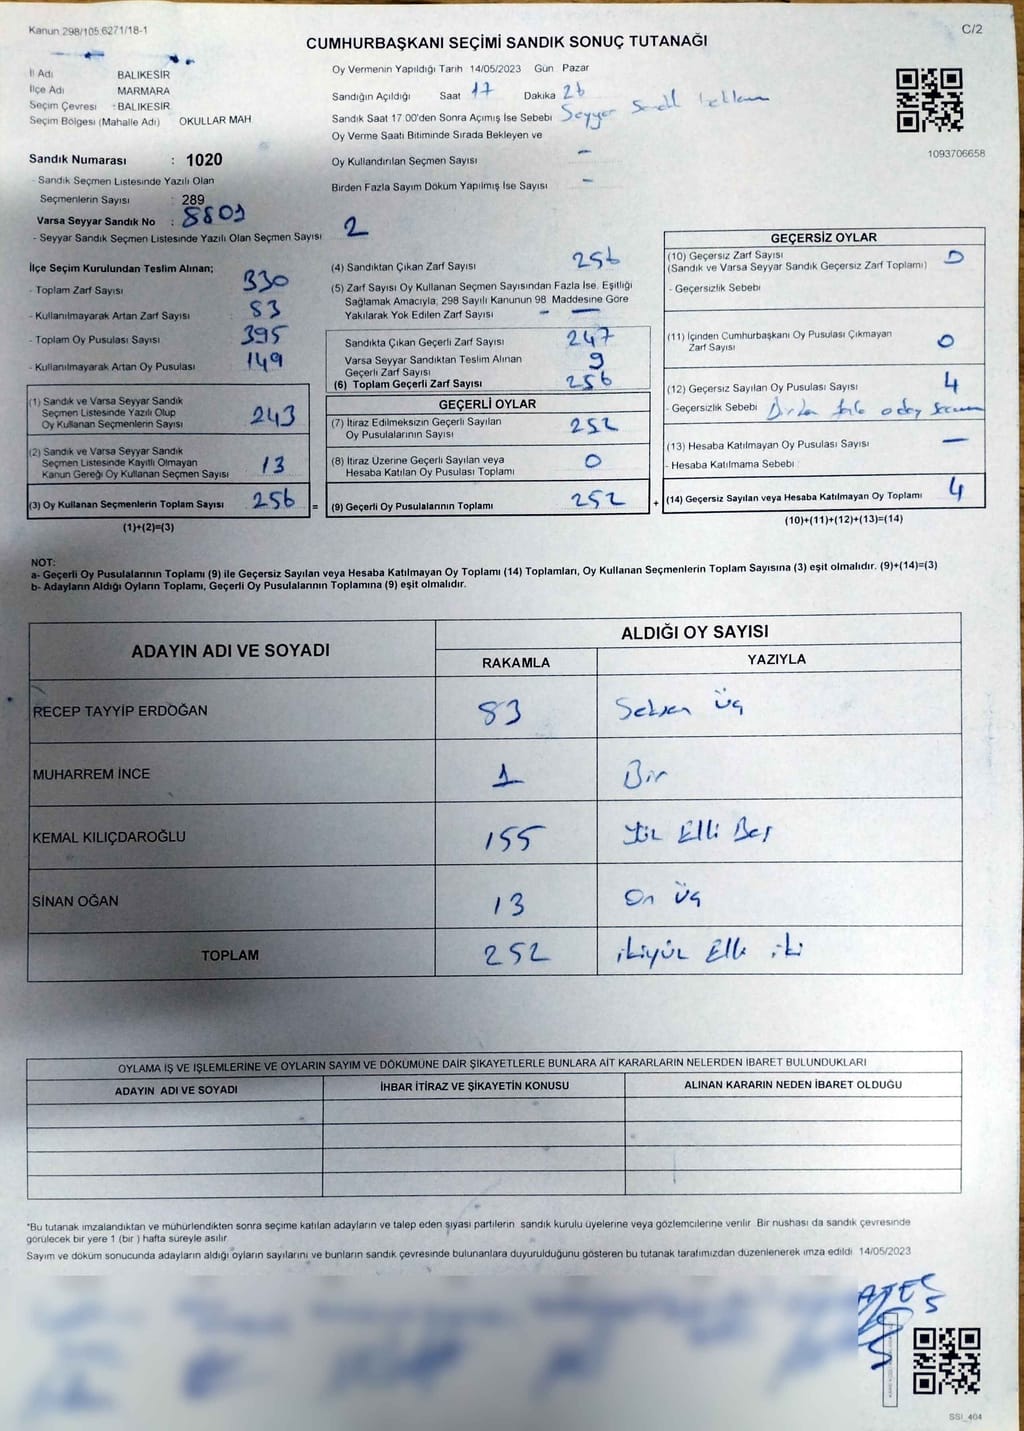 Kanun 298/105,6271/18-1
C/2
CUMHURBAŞKANI SEÇİMİ SANDIK SONUÇ TUTANAĞI
İl Adı BALIKESİR
İlçe Adı MARMARA
Seçim Çevresi : BALIKESİR
Seçim Bölgesi (Mahalle Adı) OKULLAR MAH
Sandık Numarası : 1020
- Sandık Seçmen Listesinde Yazılı Olan
Seçmenlerin Sayısı : 289
Varsa Seyyar Sandık No : 8801
- Seyyar Sandık Seçmen Listesinde Yazılı Olan Seçmen Sayısı 2
Oy Vermenin Yapıldığı Tarih 14/05/2023 Gün Pazar
Sandığın Açıldığı Saat 17 Dakika 26
Sandık Saat 17.00'den Sonra Açımış İse Sebebi Seyyar Sandık
Oy Verme Saati Bitiminde Sırada Bekleyen ve
Oy Kullandırılan Seçmen Sayısı -
Birden Fazla Sayım Döküm Yapılmış İse Sayısı -
1093706658
İlçe Seçim Kurulundan Teslim Alınan;
- Toplam Zarf Sayısı 330
- Kullanılmayarak Artan Zarf Sayısı 83
- Toplam Oy Pusulası Sayısı 395
- Kullanılmayarak Artan Oy Pusulası 149
(1) Sandık ve Varsa Seyyar Sandık
Seçmen Listesinde Yazılı Olup
Oy Kullanan Seçmenlerin Sayısı 243
(2) Sandık ve Varsa Seyyar Sandık
Seçmen Listesinde Kayıtlı Olmayan
Kanun Gereği Oy Kullanan Seçmen Sayısı 13
(3) Oy Kullanan Seçmenlerin Toplam Sayısı 256 =
(1)+(2)=(3)
(4) Sandıktan Çıkan Zarf Sayısı 256
(5) Zarf Sayısı Oy Kullanan Seçmen Sayısından Fazla İse, Eşitliği
Sağlamak Amacıyla; 298 Sayılı Kanunun 98 Maddesine Göre
Yakılarak Yok Edilen Zarf Sayısı - -
Sandıkta Çıkan Geçerli Zarf Sayısı 247
Varsa Seyyar Sandıktan Teslim Alınan
Geçerli Zarf Sayısı 9
(6) Toplam Geçerli Zarf Sayısı 256
GEÇERLİ OYLAR
(7) İtiraz Edilmeksizin Geçerli Sayılan
Oy Pusulalarının Sayısı 252
(8) İtiraz Üzerine Geçerli Sayılan veya
Hesaba Katılan Oy Pusulası Toplamı 0
(9) Geçerli Oy Pusulalarının Toplamı 252 +
GEÇERSİZ OYLAR
(10) Geçersiz Zarf Sayısı 0
(Sandık ve Varsa Seyyar Sandık Geçersiz Zarf Toplamı)
- Geçersizlik Sebebi
(11) İçinden Cumhurbaşkanı Oy Pusulası Çıkmayan
Zarf Sayısı 0
(12) Geçersiz Sayılan Oy Pusulası Sayısı 4
- Geçersizlik Sebebi Birden fazla aday
(13) Hesaba Katılmayan Oy Pusulası Sayısı -
- Hesaba Katılmama Sebebi
(14) Geçersiz Sayılan veya Hesaba Katılmayan Oy Toplamı 4
(10)+(11)+(12)+(13)=(14)
NOT:
a- Geçerli Oy Pusulalarının Toplamı (9) ile Geçersiz Sayılan veya Hesaba Katılmayan Oy Toplamı (14) Toplamları, Oy Kullanan Seçmenlerin Toplam Sayısına (3) eşit olmalıdır. (9)+(14)=(3)
b- Adayların Aldığı Oyların Toplamı, Geçerli Oy Pusulalarının Toplamına (9) eşit olmalıdır.
ADAYIN ADI VE SOYADI
ALDIĞI OY SAYISI
RAKAMLA YAZIYLA
RECEP TAYYİP ERDOĞAN 83 Seksen Üç
MUHARREM İNCE 1 Bir
KEMAL KILIÇDAROĞLU 155 Yüz Elli Beş
SİNAN OĞAN 13 On Üç
TOPLAM 252 ikiyüz Elli iki
OYLAMA İŞ VE İŞLEMLERİNE VE OYLARIN SAYIM VE DÖKÜMÜNE DAİR ŞİKAYETLERLE BUNLARA AİT KARARLARIN NELERDEN İBARET BULUNDUKLARI
ADAYIN ADI VE SOYADI İHBAR İTİRAZ VE ŞİKAYETİN KONUSU ALINAN KARARIN NEDEN İBARET OLDUĞU
*Bu tutanak imzalandıktan ve mühürlendikten sonra seçime katılan adayların ve talep eden siyasi partilerin sandık kurulu üyelerine veya gözlemcilerine verilir. Bir nüshası da sandık çevresinde
görülecek bir yere 1 (bir ) hafta süreyle asılır.
Sayım ve döküm sonucunda adayların aldığı oyların sayılarını ve bunların sandık çevresinde bulunanlara duyurulduğunu gösteren bu tutanak tarafımızdan düzenlenerek imza edildi 14/05/2023
SSI_404